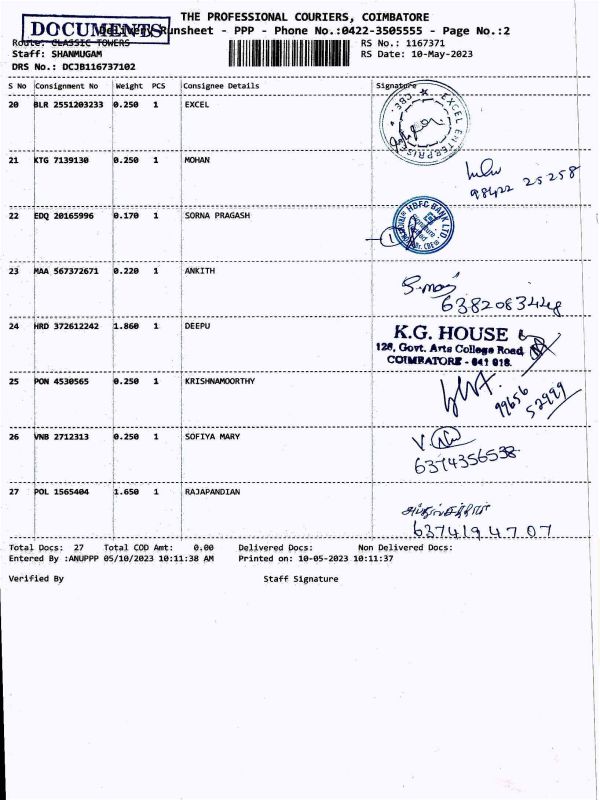 THE PROFESSIONAL COURIERS, COIMBATORE
DOCUMENTS
Delivery Runsheet - PPP - Phone No.:0422-3505555 - Page No.:2
Route: CLASSIC TOWERS
RS No.: 1167371
Staff: SHANMUGAM
RS Date: 10-May-2023
DRS No.: DCJB116737102
S No Consignment No Weight PCS Consignee Details Signature
20 BLR 2551203233 0.250 1 EXCEL
EXCEL ENTERPRISES CBE
21 KTG 7139130 0.250 1 MOHAN
98422 25258
22 EDQ 20165996 0.170 1 SORNA PRAGASH
HDFC BANK LTD.
23 MAA 567372671 0.220 1 ANKITH
6382083448
24 HRD 372612242 1.860 1 DEEPU
K.G. HOUSE
128, Govt. Arts College Road,
COIMBATORE - 641 018.
25 PON 4530565 0.250 1 KRISHNAMOORTHY
99656
52999
26 VNB 2712313 0.250 1 SOFIYA MARY
6374356538
27 POL 1565404 1.650 1 RAJAPANDIAN
6374194707
Total Docs: 27 Total COD Amt: 0.00 Delivered Docs: Non Delivered Docs:
Entered By :ANUPPP 05/10/2023 10:11:38 AM Printed on: 10-05-2023 10:11:37
Verified By Staff Signature